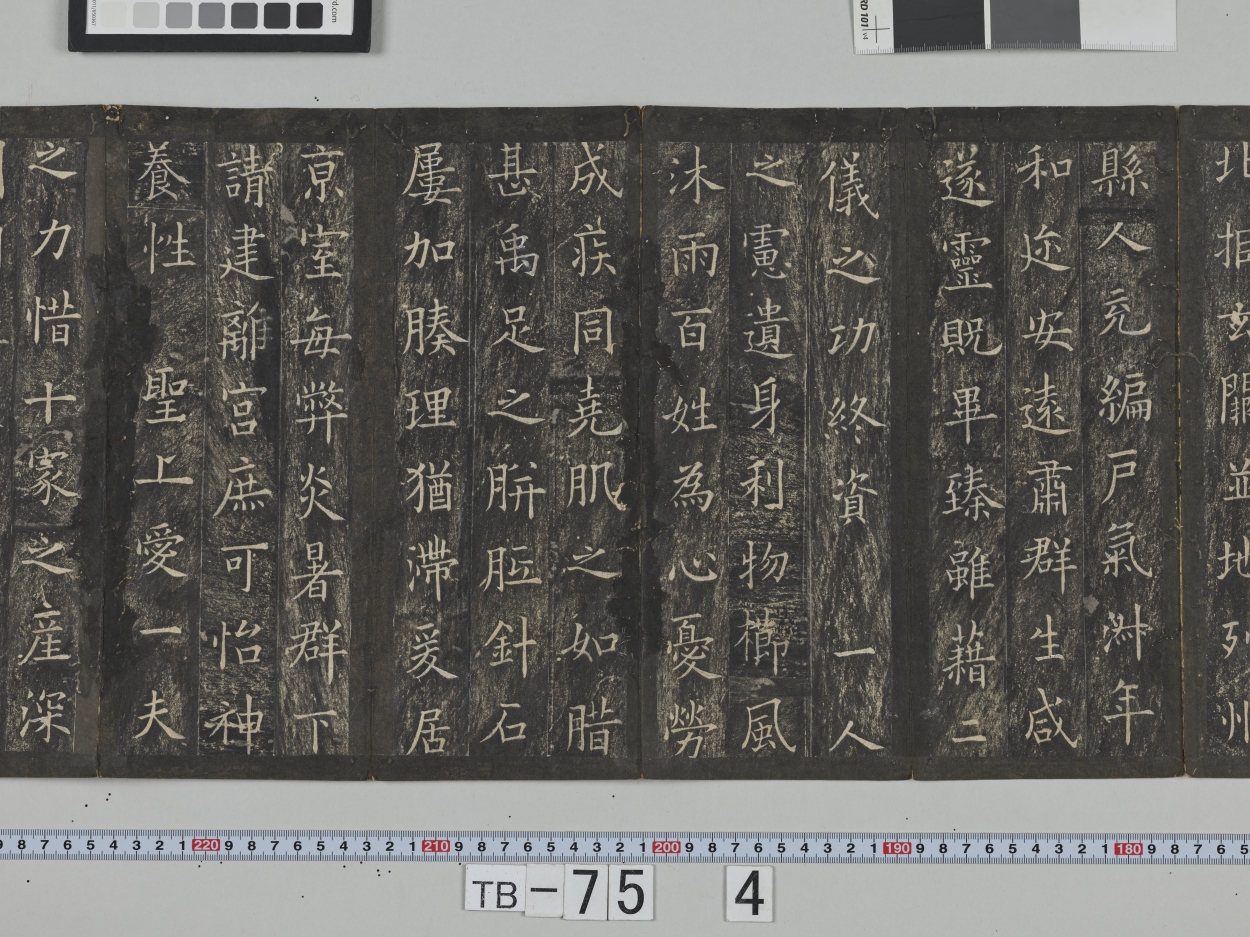 北拒玄闕並地列州
縣人充編戶氣淋年
和迩安遠肅群生咸
遂靈貺畢臻雖藉二
儀之功終資一人
之慮遺身利物櫛風
沐雨百姓為心憂勞
成疾同堯肌之如腊
甚禹足之胼胝針石
屢加腠理猶滯爰居
京室每弊炎暑群下
請建離宮庶可怡神
養性聖上愛一夫
之力惜十家之產深
TB-75 4